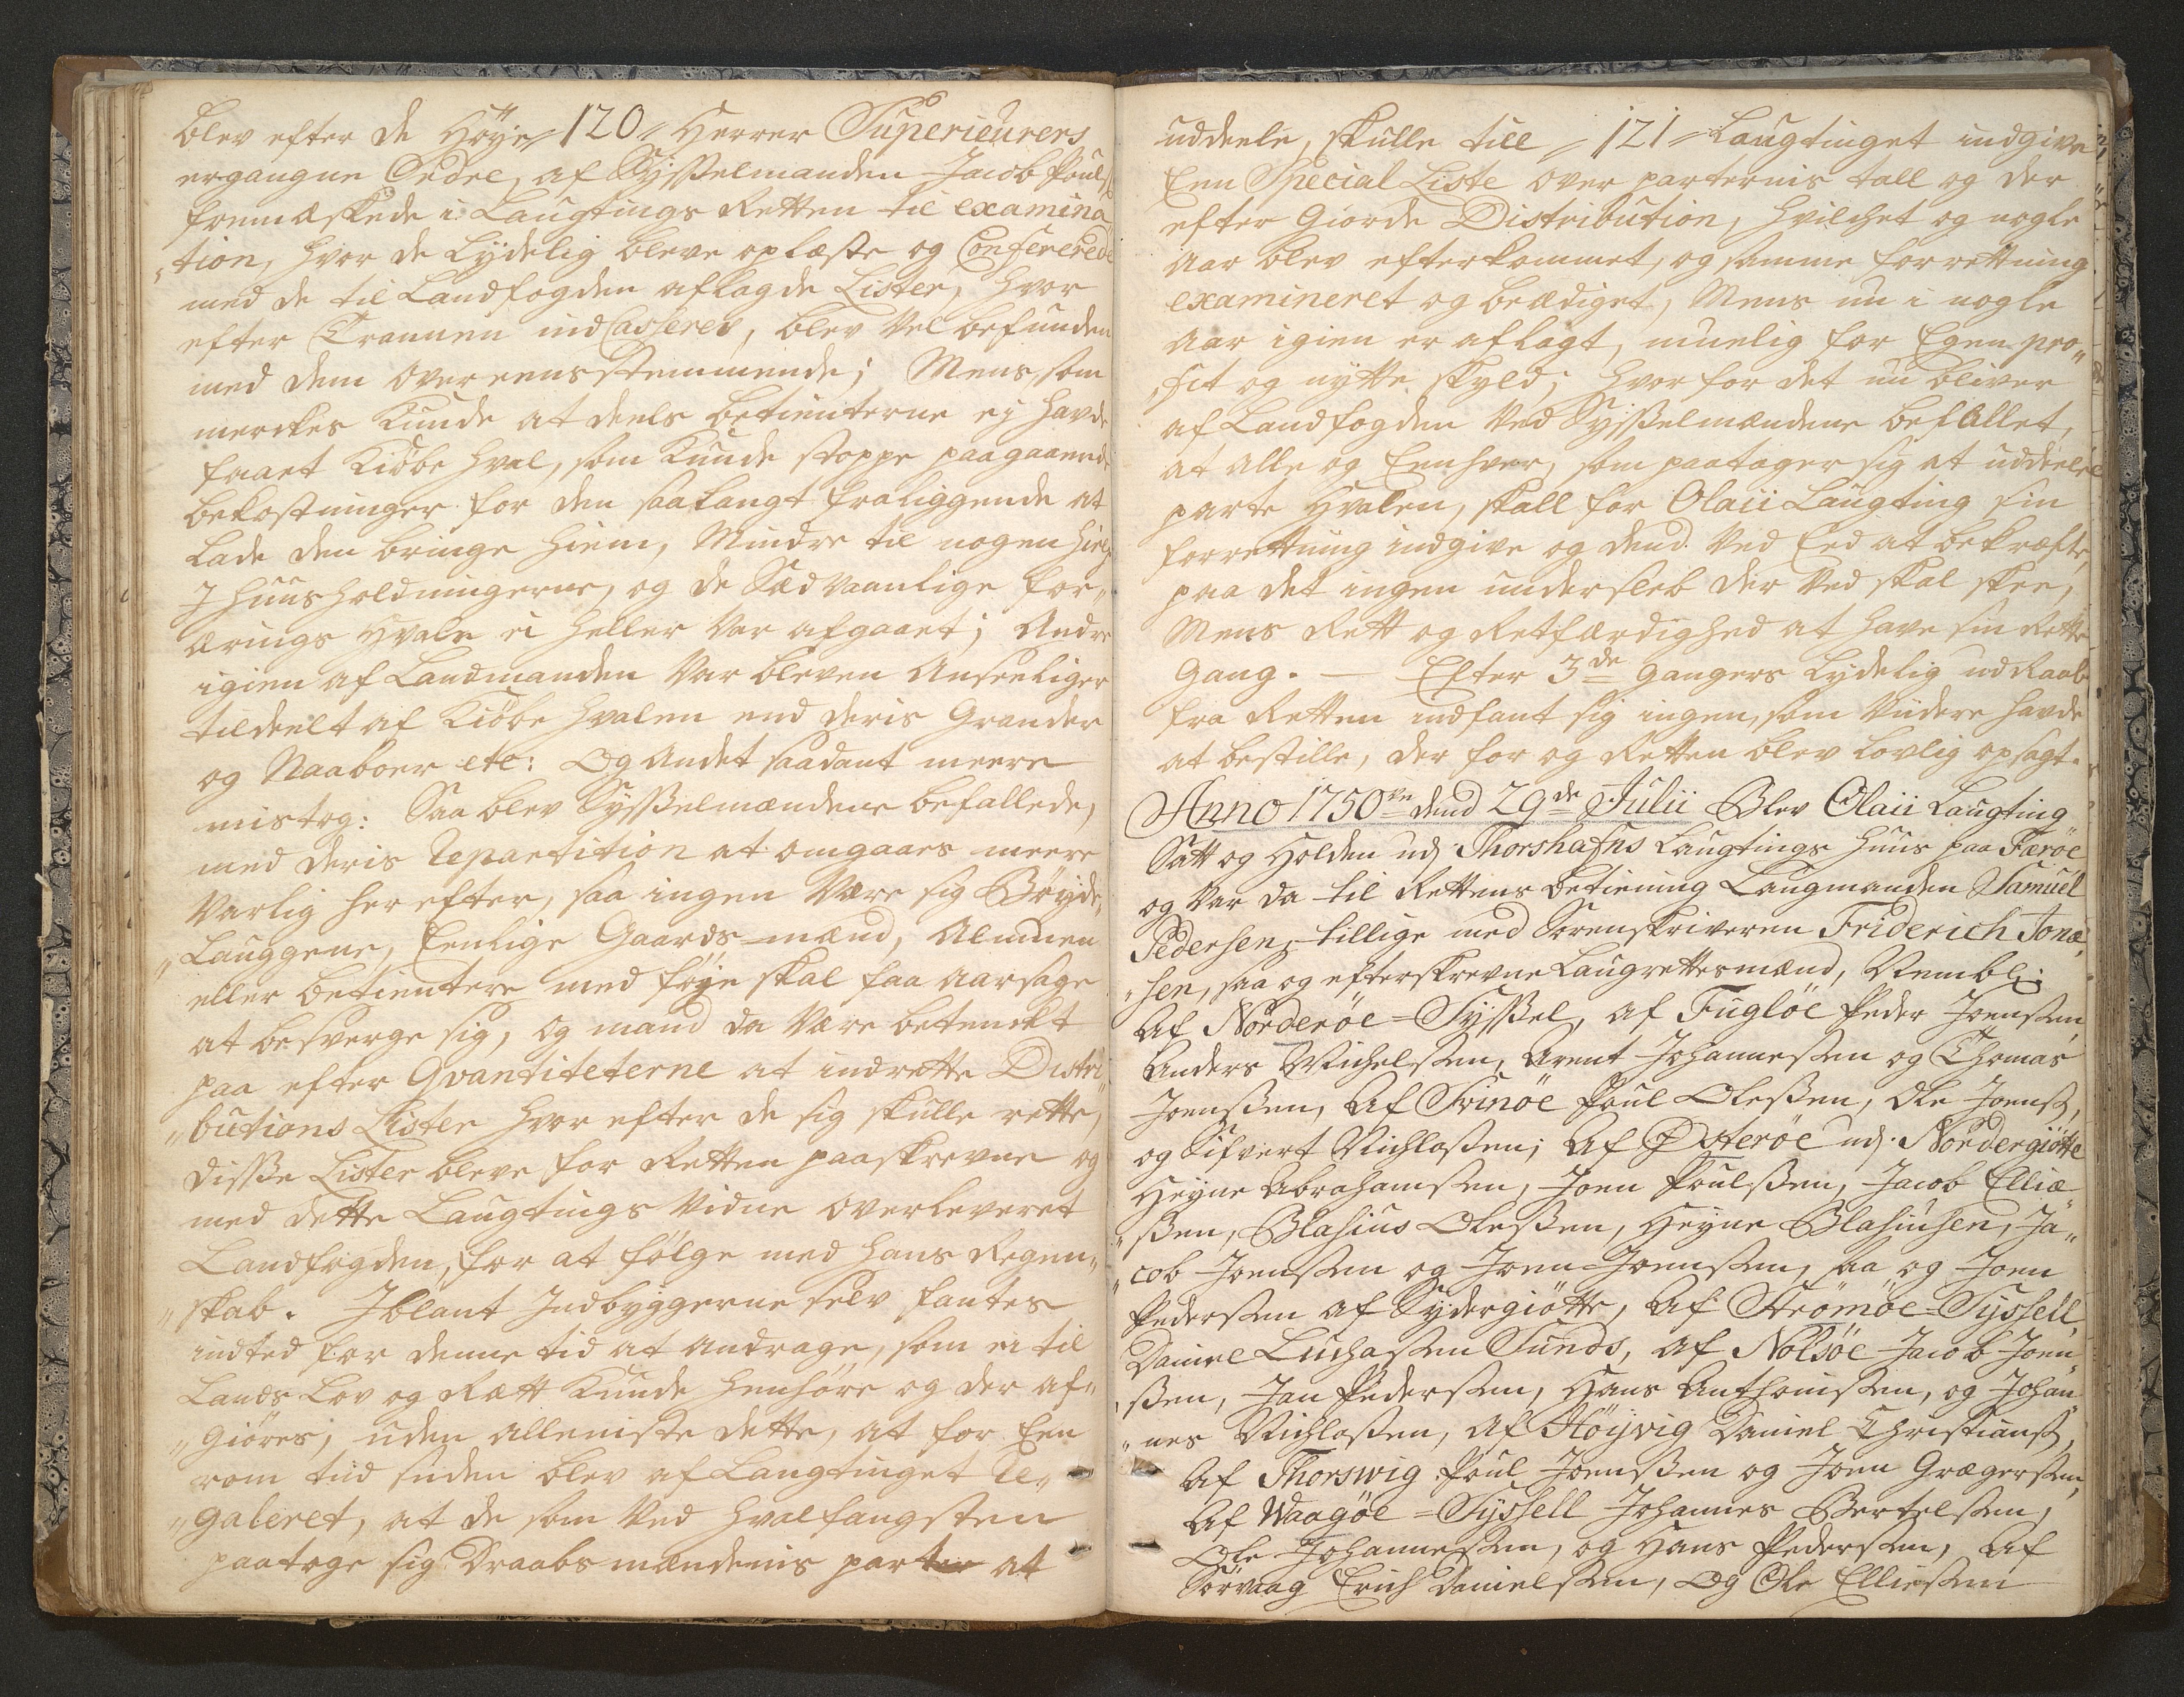 blev efter de Høye // 120 // Herrer Superieurers
ergangne Ordre, af Sysselmanden Jacob Pouls
fremæskede i Laugtings Retten til examina
„tion, hvor de lydelig bleve oplæste og Confererede
med de til Landfogden aflagde Lister, hvor
efter Trannen indCasseres, blev vel befunden
med dem overeensstemmende; Mens, som
merckes kunde at deels betienterne ej havde
faaet Kiøbe hval, som kunde stoppe paagaaende
bekostninger for den saa langt fraliggende at
lade den bringe hiem, Mindre til nogen hielp
I huusholdningerne, og de Sædvaanlige for„
ærings Hvale ei heller var afgaaet; Andre
igien af Landmanden var bleven Anseeligere
tildeelt af Kiøbe hvalen end deris Grander
og Naaboer etc: og Andet saadant meere
mistog: Saa blev Sysselmændene befallede,
med deris Repartition at omgaaes meere
varlig her efter, saa ingen være sig Bøyde„
„Lauggene, Eenlige Gaards-mænd, Almuen
eller betientere med føye skal faa aarsage
at besverge sig, og maand da være betenckt
paa efter Qvantiteterne at indrette Distri„
„butions Lister hvor efter de sig skulle rette,
disse Lister bleve for Retten paaskrevne og
med dette Laugtings vidne overleveret
Landfogden, for at følge med hans Regen„
„skab. Iblant Indbyggerne selv fantes
indted for denne tid at andrage, som ei til
Lands Lov og Rætt kunde henhøre og der af„
„giøres; uden alleniste dette, at for Een
rom tiid siden blev af Laugtinget Re„
„galeret, at de som ved hvalfangsten
paatoge sig Draabsmændenis parter at
uddeele, skulle till // 121 // Laugtinget indgive
Een Special Liste over parternis tall og der
efter Giorde Distribution, hvilchet og nogle
Aar blev efterkommet, og samme forrettning
examineret og beædiget, Mens nu i nogle
Aar igien er aflagt, muelig for Egen pro„
„fit og nytte skyld; hvor for det nu bliver
af Landfogden ved Sysselmændene befallet,
at alle og Eenhver, som paatager sig at uddeele
parte Hvalen, skall for Olaii Laugting sin
forrettning indgive og dend ved Eed at bekræfte,
paa det ingen underslæb der ved skal skee,
Mens Rett og Retfærdighed at have sin Rette
Gang. — Efter 3de Gangers lydelig udRaab
fra Retten indfant sig ingen, som viidere havde
at bestille, der for og Retten blev lovlig opsagt.
Anno 1750ve dend 29de Julii Blev Olaii Laugting
Satt og Holden udj Thorshafns Laugtings huus paa Færöe
og var da til Rettens betiening Laugmanden Samuel
Pedersen, tillige med Sorenskriveren Friderich Jonæ
„sen, saa og efterskrevne Laugrettesmænd, Nembl:
Af Norderöe-Syssel, af Fuglöe Peder Joensen,
Anders Michelsen, Arent Johannesen og Thomas
Joenssen, Af Svinöe Poul Olessen, Ole Joens,
og Sifvert Nichlassen; Af Østeröe udj Nordergiötte
Heyne Abrahamsen, Joen Poulssen, Jacob Elliæ
„ssen, Blasius Olessen, Heyne Blasiusen, Ja„
„cob Joensen og Joen Joensen, saa og Joen
Pedersen af Sydergiötte, Af Strömöe-Syssell,
Daniel Luchassen Sunds, af Nolsöe Jacob Joen
„ssen, Jan Pedersen, Hans Anthonissen, og Johan
„nes Nichlassen, Af Höyvig Daniel Christians,
Af Thorswig Poul Joenssen og Joen Grægersen,
Af Waagöe-Syssell Johannes Bertelsen,
Ole Johannesen, og Hans Pedersen, Af
Sörvaag Erich Danielsen, Og Ole Elliesen